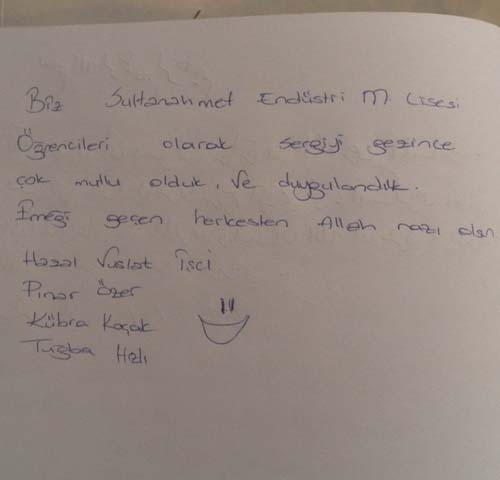 Biz Sultanahmet Endüstri M. Lisesi
Öğrencileri olarak sergiyi gezince
çok mutlu olduk, ve duygulandık.
Emeği geçen herkesten Allah razı olsn
Hazal Vuslat İşci
Pınar Özer
Kübra Koçak
Tuğba Hızlı